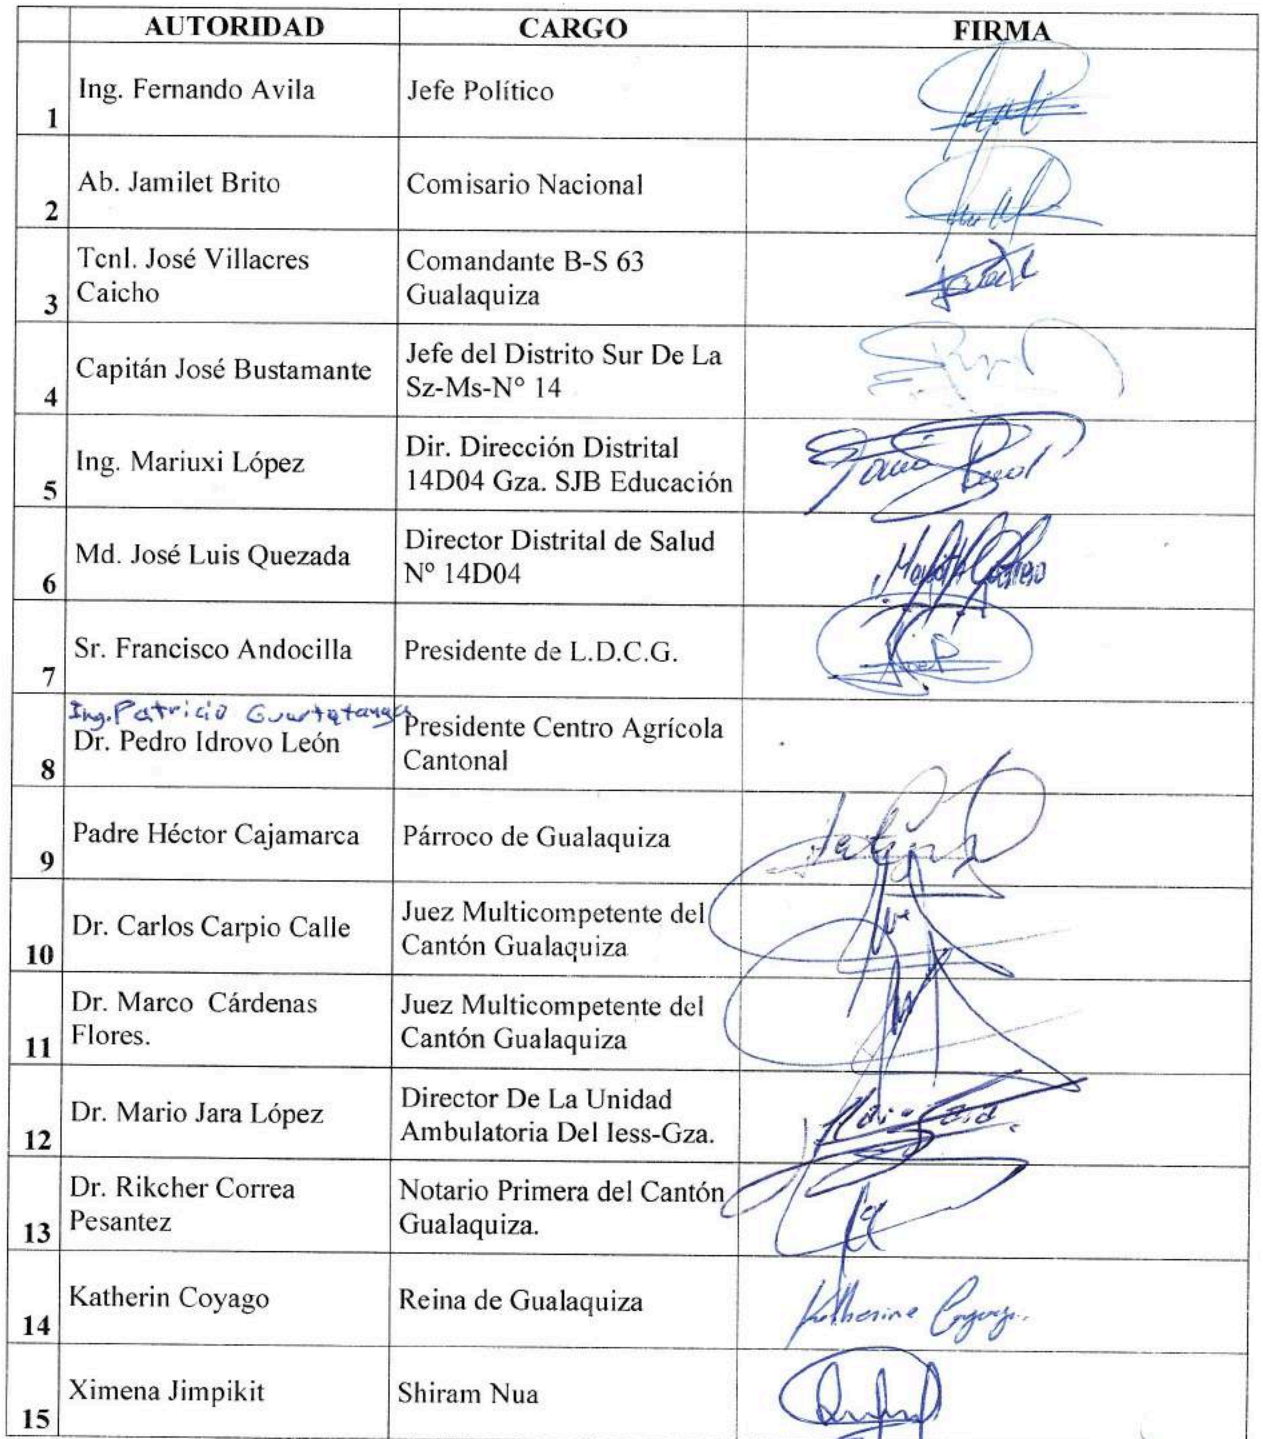 AUTORIDAD CARGO FIRMA
1 Ing. Fernando Avila Jefe Político
2 Ab. Jamilet Brito Comisario Nacional
3 Tcnl. José Villacres Caicho Comandante B-S 63 Gualaquiza
4 Capitán José Bustamante Jefe del Distrito Sur De La Sz-Ms-N° 14
5 Ing. Mariuxi López Dir. Dirección Distrital 14D04 Gza. SJB Educación
6 Md. José Luis Quezada Director Distrital de Salud N° 14D04
7 Sr. Francisco Andocilla Presidente de L.D.C.G.
Ing. Patricio
8 Dr. Pedro Idrovo León Presidente Centro Agrícola Cantonal
9 Padre Héctor Cajamarca Párroco de Gualaquiza
10 Dr. Carlos Carpio Calle Juez Multicompetente del Cantón Gualaquiza
11 Dr. Marco Cárdenas Flores. Juez Multicompetente del Cantón Gualaquiza
12 Dr. Mario Jara López Director De La Unidad Ambulatoria Del Iess-Gza.
13 Dr. Rikcher Correa Pesantez Notario Primera del Cantón Gualaquiza.
14 Katherin Coyago Reina de Gualaquiza Katherine Coyago
15 Ximena Jimpikit Shiram Nua